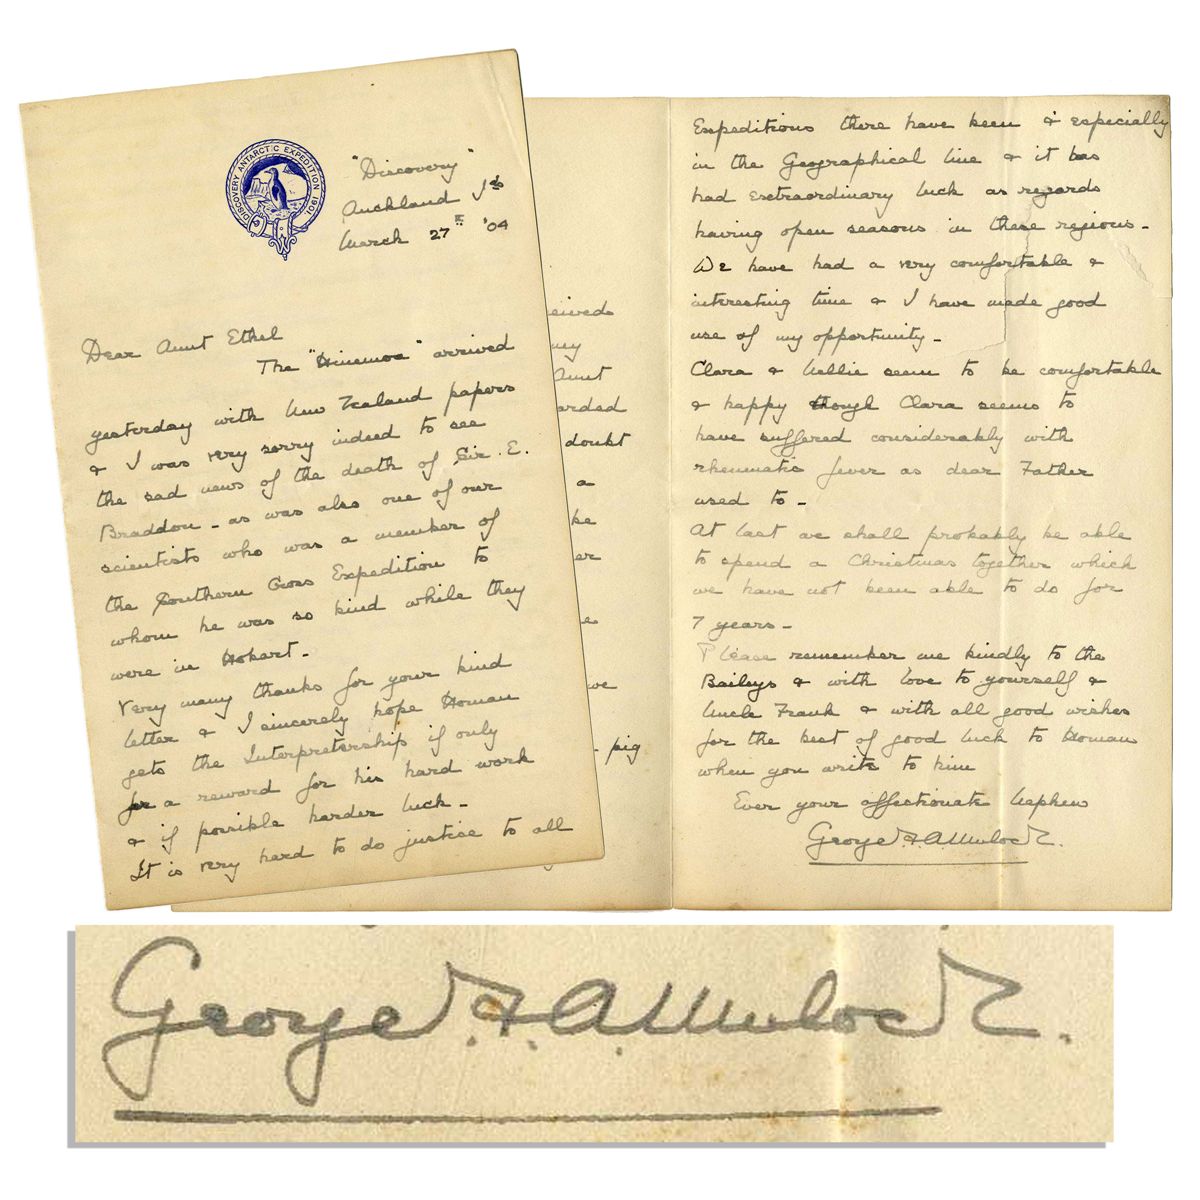 DISCOVERY ANTARCTIC EXPEDITION 1901.
"Discovery"
Auckland Is
March 27th '04
Dear Aunt Ethel
The "Hinemoa" arrived
yesterday with New Zealand papers
& I was very sorry indeed to see
the sad news of the death of Sir. E.
Braddon - as was also one of our
scientists who was a member of
the Southern Cross Expedition to
whom he was so kind while they
were in Hobart -
Very many thanks for your kind
letter & I sincerely hope Homan
gets the Interpretership if only
for a reward for his hard work
& if possible harder luck -
It is very hard to do justice to all
my
Aunt
doubt
a
we
- pig
Expeditions there have been & especially
in the Geographical line & it has
had exetraordinary luck as regards
having open seasons in these regions -
We have had a very comfortable &
interesting time & I have made good
use of my opportunity -
Clara & Nellie seem to be comfortable
& happy though Clara seems to
have suffered considerably with
rheumatic fever as dear Father
used to -
At last we shall probably be able
to spend a Christmas together which
we have not been able to do for
7 years -
Please remember me kindly to the
Baileys & with love to yourself &
Uncle Frank & with all good wishes
for the best of good luck to Homan
when you write to him
Ever your affectionate Nephew
George F. A. Mulock.
George F. A. Mulock.